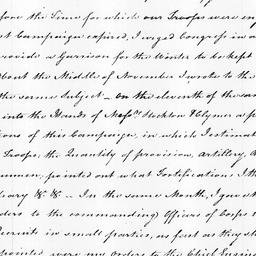 fore the Time for which our Troops were en
st Campaign expired, I urged Congress in a
provide a Garrison for the Winter to be kept
about the Middle of November I wrote to the
the same Subject — On the eleventh of the sam
into the Hands of Messrs Stockton & Clymer a p
ions of this Campaign, in which I estimat
Troops, the Quantity of provision, Artillery, A
pointed out what Fortifications I th
&c &c — In the same Month, I gave
ders to the commanding Officers of Corps t
Recruits in small parties, as fast as they sh
were my Orders to the Chief Engine